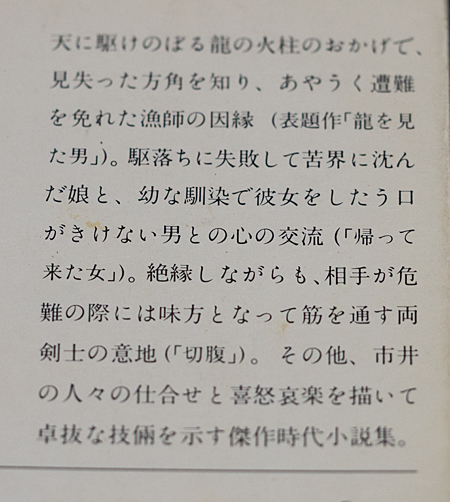 天に駆けのぼる龍の火柱のおかげで、
見失った方角を知り、あやうく遭難
を免れた漁師の因縁（表題作「龍を見
た男」）。駆落ちに失敗して苦界に沈ん
だ娘と、幼な馴染で彼女をしたう口
がきけない男との心の交流（「帰って
来た女」）。絶縁しながらも、相手が危
難の際には味方となって筋を通す両
剣士の意地（「切腹」）。その他、市井
の人々の仕合せと喜怒哀楽を描いて
卓抜な技倆を示す傑作時代小説集。